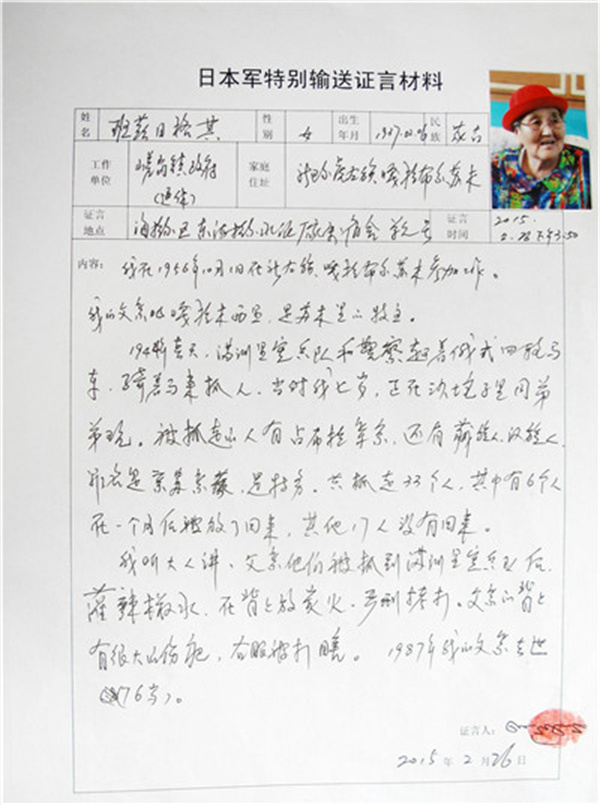 日本军特别输送证言材料
姓名 班兹日格其 性别 女 出生年月 1937.12.26 民族 蒙古
工作单位 嵯岗镇政府(退休) 家庭住址 新巴尔虎左旗嘎拉布尔苏木
证言地点 海拉尔区 证言时间 2015.2.26下午3:50
内容: 我在1956年10月1日在新左旗嘎拉布尔苏木参加工作。
我的父亲叫嘎拉木西里,是苏木里的牧主。
1944年春天,满洲里宪兵队和警察赶着俄式四轮马
车,骑着马来抓人,当时我七岁,正在沙坨子里同弟
弟玩。被抓走的人有占布拉,还有
是特务。共抓走33个人,其中有6个人
在一个月后释放了回来,其他17人没有回来。
我听大人讲,父亲他们被抓到满洲里宪兵队后,
灌辣椒水,在背上放炭火,严刑拷打。父亲的背上
有很大的伤疤,右眼被打瞎。1987年我的父亲去世
(76岁)。
证言人:
2015年2月26日